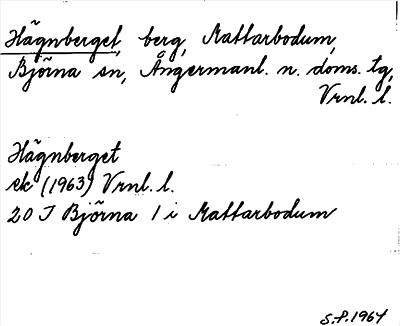 Hägnberget, berg, Mattarbodum,
Björna sn, Ångermanl. n. doms. tg,
Vrnl. l.
Hägnberget
ek (1963) Vrnl. l.
20 J Björna 1 i Mattarbodum
S.P. 1964